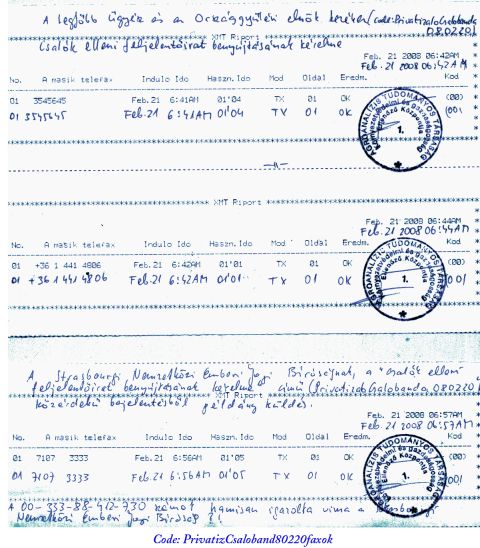 A legfőbb Ügyész és az Országgyűlési elnök kezében (code: PrivatizaloGalobanda
080220)
Csalók elleni feljelentőirat benyújtásának kérelme
XMT Riport
Feb. 21 2008 06:42AM
Feb. 21 2008 06:42AM
No. A masik telefax Indulo Ido Haszn.Ido Mod Oldal Eredm. Kod
01 3545645 Feb.21 6:41AM 01'04 TX 01 OK (00)
01 3545645 Feb.21 6:41AM 01'04 TX 01 OK (00)
AGROANALÍZIS TUDOMÁNYOS TÁRSASÁG
Környezetvédelmi és Gazdaságossági
Ellenőző Központja
1.
XMT Riport
Feb. 21 2008 06:44AM
Feb. 21 2008 06:44AM
No. A masik telefax Indulo Ido Haszn.Ido Mod Oldal Eredm. Kod
01 +36 1 441 4806 Feb.21 6:42AM 01'01 TX 01 OK (00)
01 +36 1 441 4806 Feb.21 6:42AM 01'01 TX 01 OK (00)
AGROANALÍZIS TUDOMÁNYOS TÁRSASÁG
Környezetvédelmi és Gazdaságossági
Ellenőző Központja
1.
A Strasbourgi Nemzetközi Emberi Jogi Bíróságnak, a "Csalók elleni
feljelentőirat benyújtásának kérelme" című (PrivatizaloGalobanda080220)
XMT Riport
közérdekű bejelentésből példány küldés.
Feb. 21 2008 06:57AM
Feb. 21 2008 06:57AM
No. A masik telefax Indulo Ido Haszn.Ido Mod Oldal Eredm. Kod
01 7107 3333 Feb.21 6:56AM 01'05 TX 01 OK (00)
01 7107 3333 Feb.21 6:56AM 01'05 TX 01 OK (00)
AGROANALÍZIS TUDOMÁNYOS TÁRSASÁG
Környezetvédelmi és Gazdaságossági
Ellenőző Központja
1.
A 00-333-88-412-730 számot hamisan igazolta vissza a
Nemzetközi Emberi Jogi Bíróság
Code: PrivatizCsaloband80220faxok